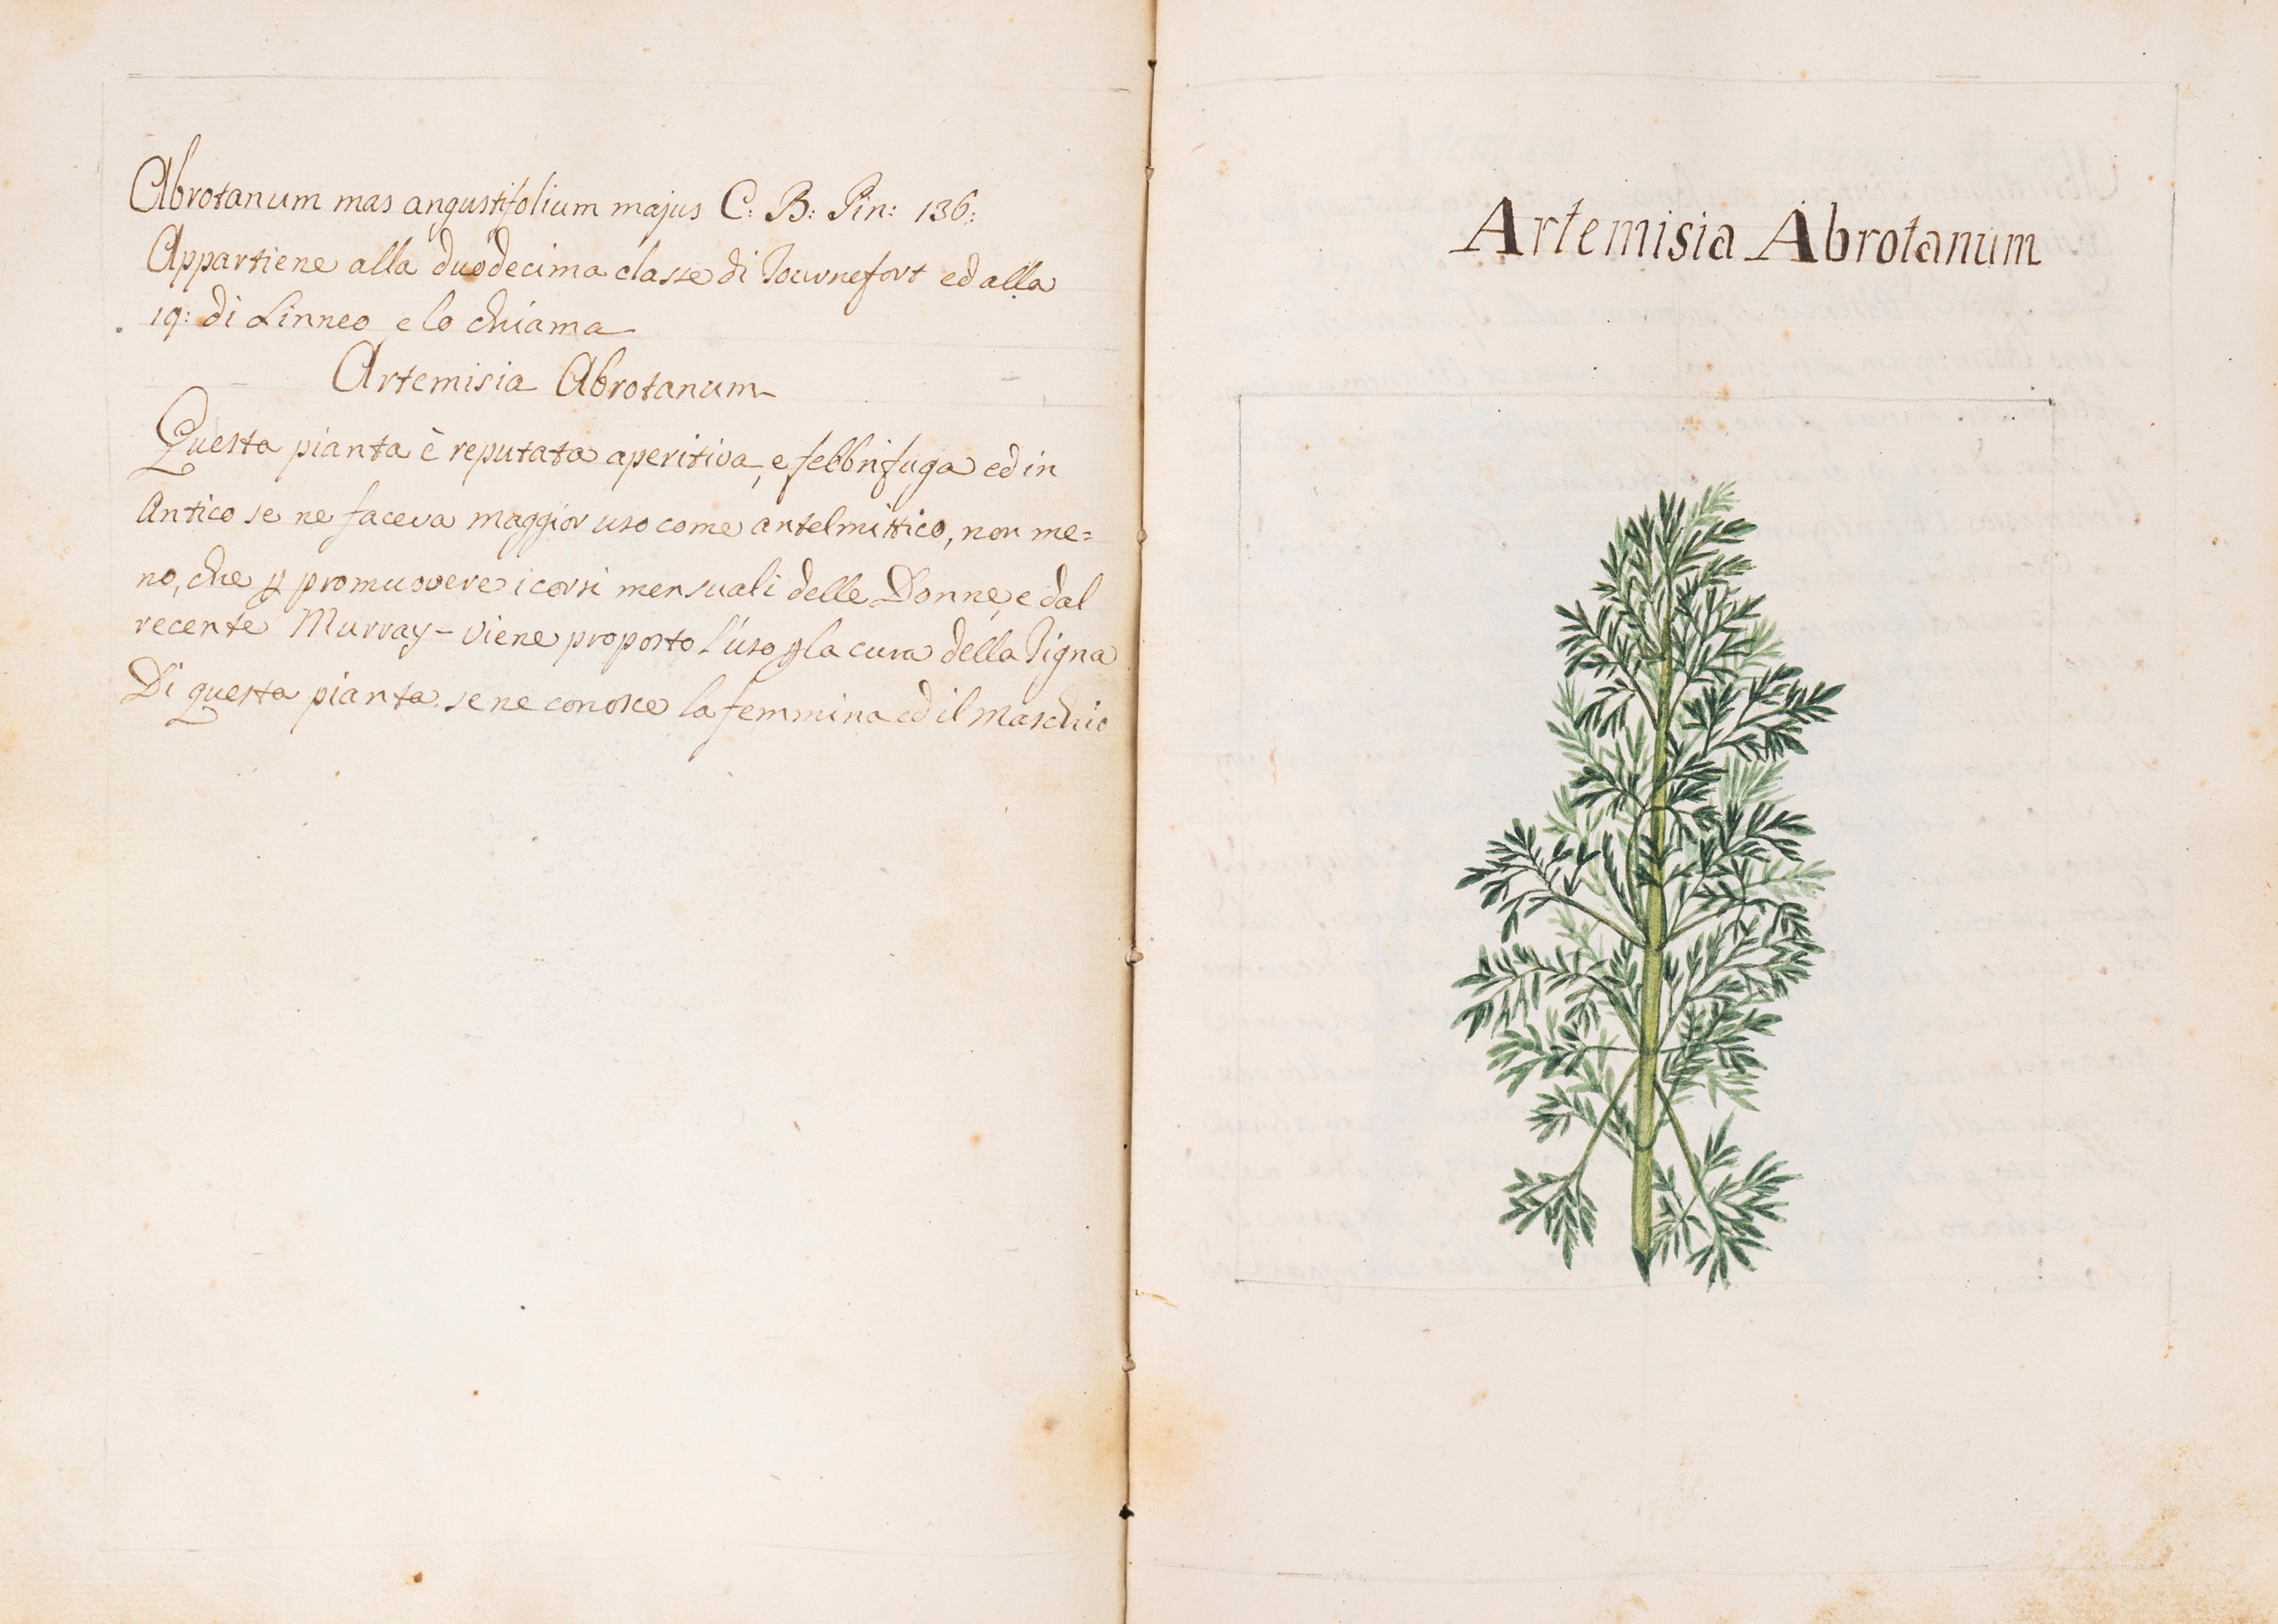 Abrotanum mas angustifolium majus C: B: Pin: 136:
Appartiene alla duodecima classe di Tournefort ed alla
19: di Linneo e lo chiama
Artemisia Abrotanum
Questa pianta è reputata aperitiva, e febbrifuga ed in
Antico se ne faceva maggior uso come antelmittico, non me=
no, che p promuovere i corsi mensuali delle Donne, e dal
recente Murray - viene proposto l'uso p la cura della Tigna
Di questa pianta se ne conosce la femmina ed il maschio
Artemisia Abrotanum